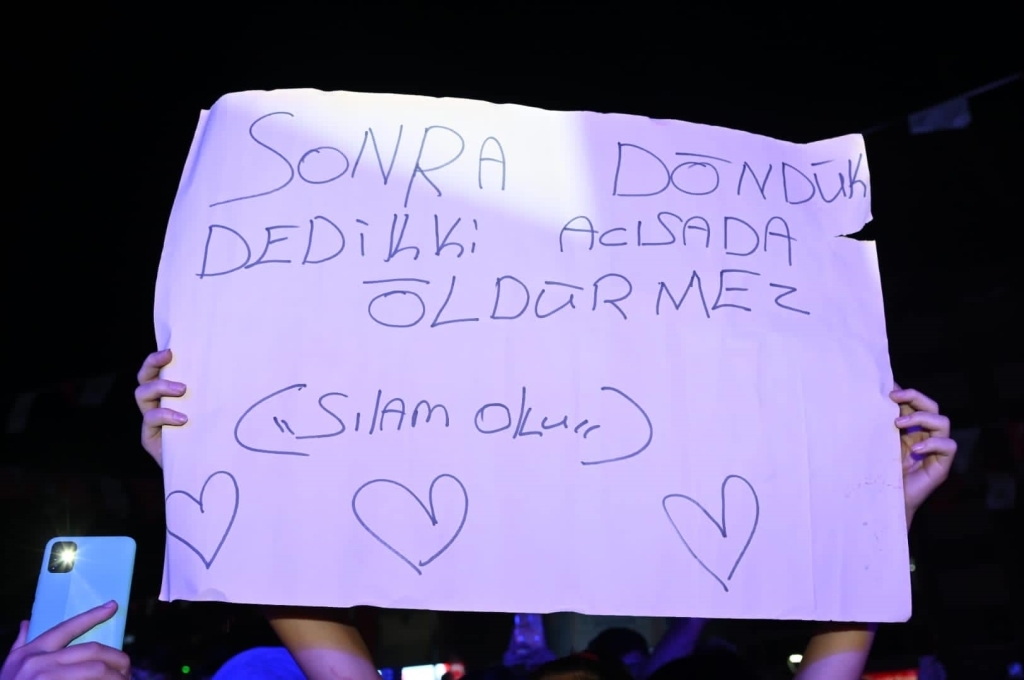 SONRA DÖNDÜK
DEDİKKİ ACISADA
ÖLDÜRMEZ
("SILAM OKU")